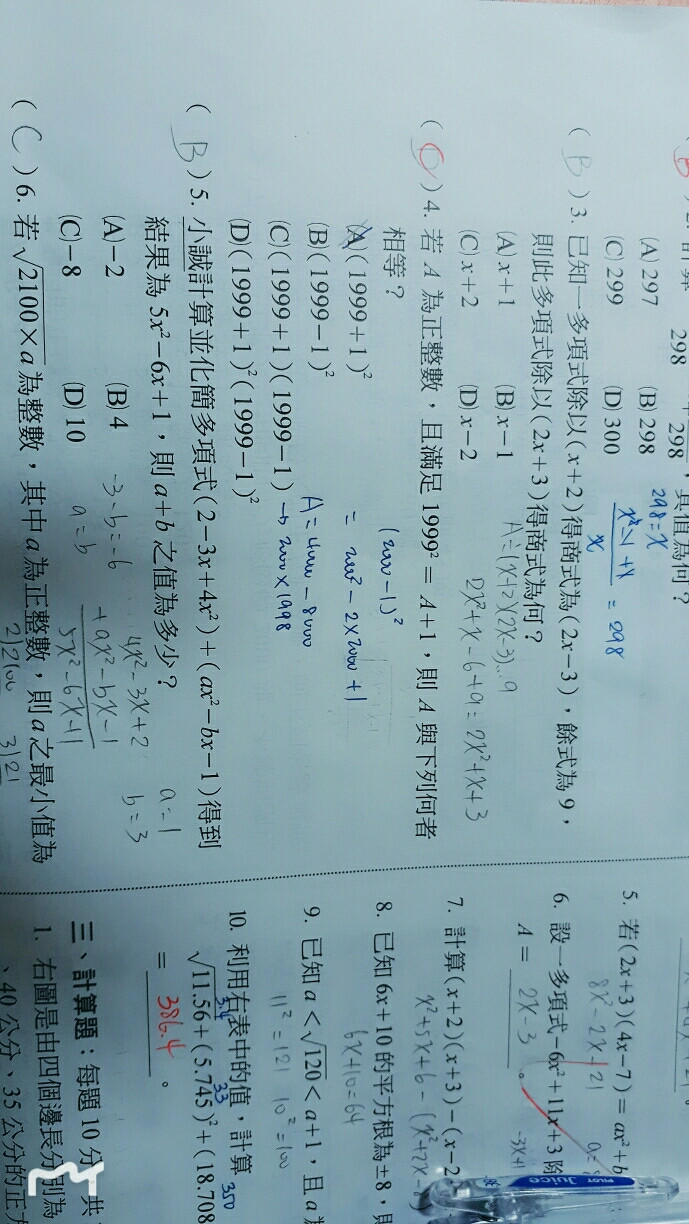 298 298 其值為何？
(A) 297 (B) 298
(C) 299 (D) 300
298=x
= 298
( B ) 3. 已知一多項式除以(x+2)得商式為(2x−3)，餘式為 9，
則此多項式除以(2x+3)得商式為何？
(A) x+1 (B) x−1
(C) x+2 (D) x−2
A=(x+2)(2x-3)...9
2x²+x-6+9=2x²+x+3
( C ) 4. 若 A 為正整數，且滿足 1999²=A+1，則 A 與下列何者
相等？
(A) (1999+1)²
(B) (1999−1)²
(C) (1999+1)(1999−1) → 2000×1998
(D) (1999+1)²(1999−1)²
(2000-1)²
= 2000²-2×2000+1
A=4000-8000
( B ) 5. 小誠計算並化簡多項式(2−3x+4x²)+(ax²−bx−1)得到
結果為 5x²−6x+1，則 a+b 之值為多少？
(A) −2 (B) 4
(C) −8 (D) 10
-3-b=-6
4x²-3x+2
+ax²-bx-1
5x²-6x+1
a=1
b=3
( C ) 6. 若√2100×a 為整數，其中 a 為正整數，則 a 之最小值為
5. 若(2x+3)(4x−7)=ax²+b
8x²-2x-21
6. 設一多項式−6x²+11x+3 除
A= 2x-3 。
-3x+1
7. 計算(x+2)(x+3)−(x−2
x²+5x+6-(x²+2x-8
8. 已知 6x+10 的平方根為±8，則
6x+10=64
9. 已知 a<√120<a+1，且 a 為
11²=121 10²=100
10. 利用右表中的值，計算
3.4 33 350
√11.56+(5.745)²+(18.708
= 386.4 。
三、計算題：每題 10 分，共
1. 右圖是由四個邊長分別為
、40 公分、35 公分的正方
PILOT Juice